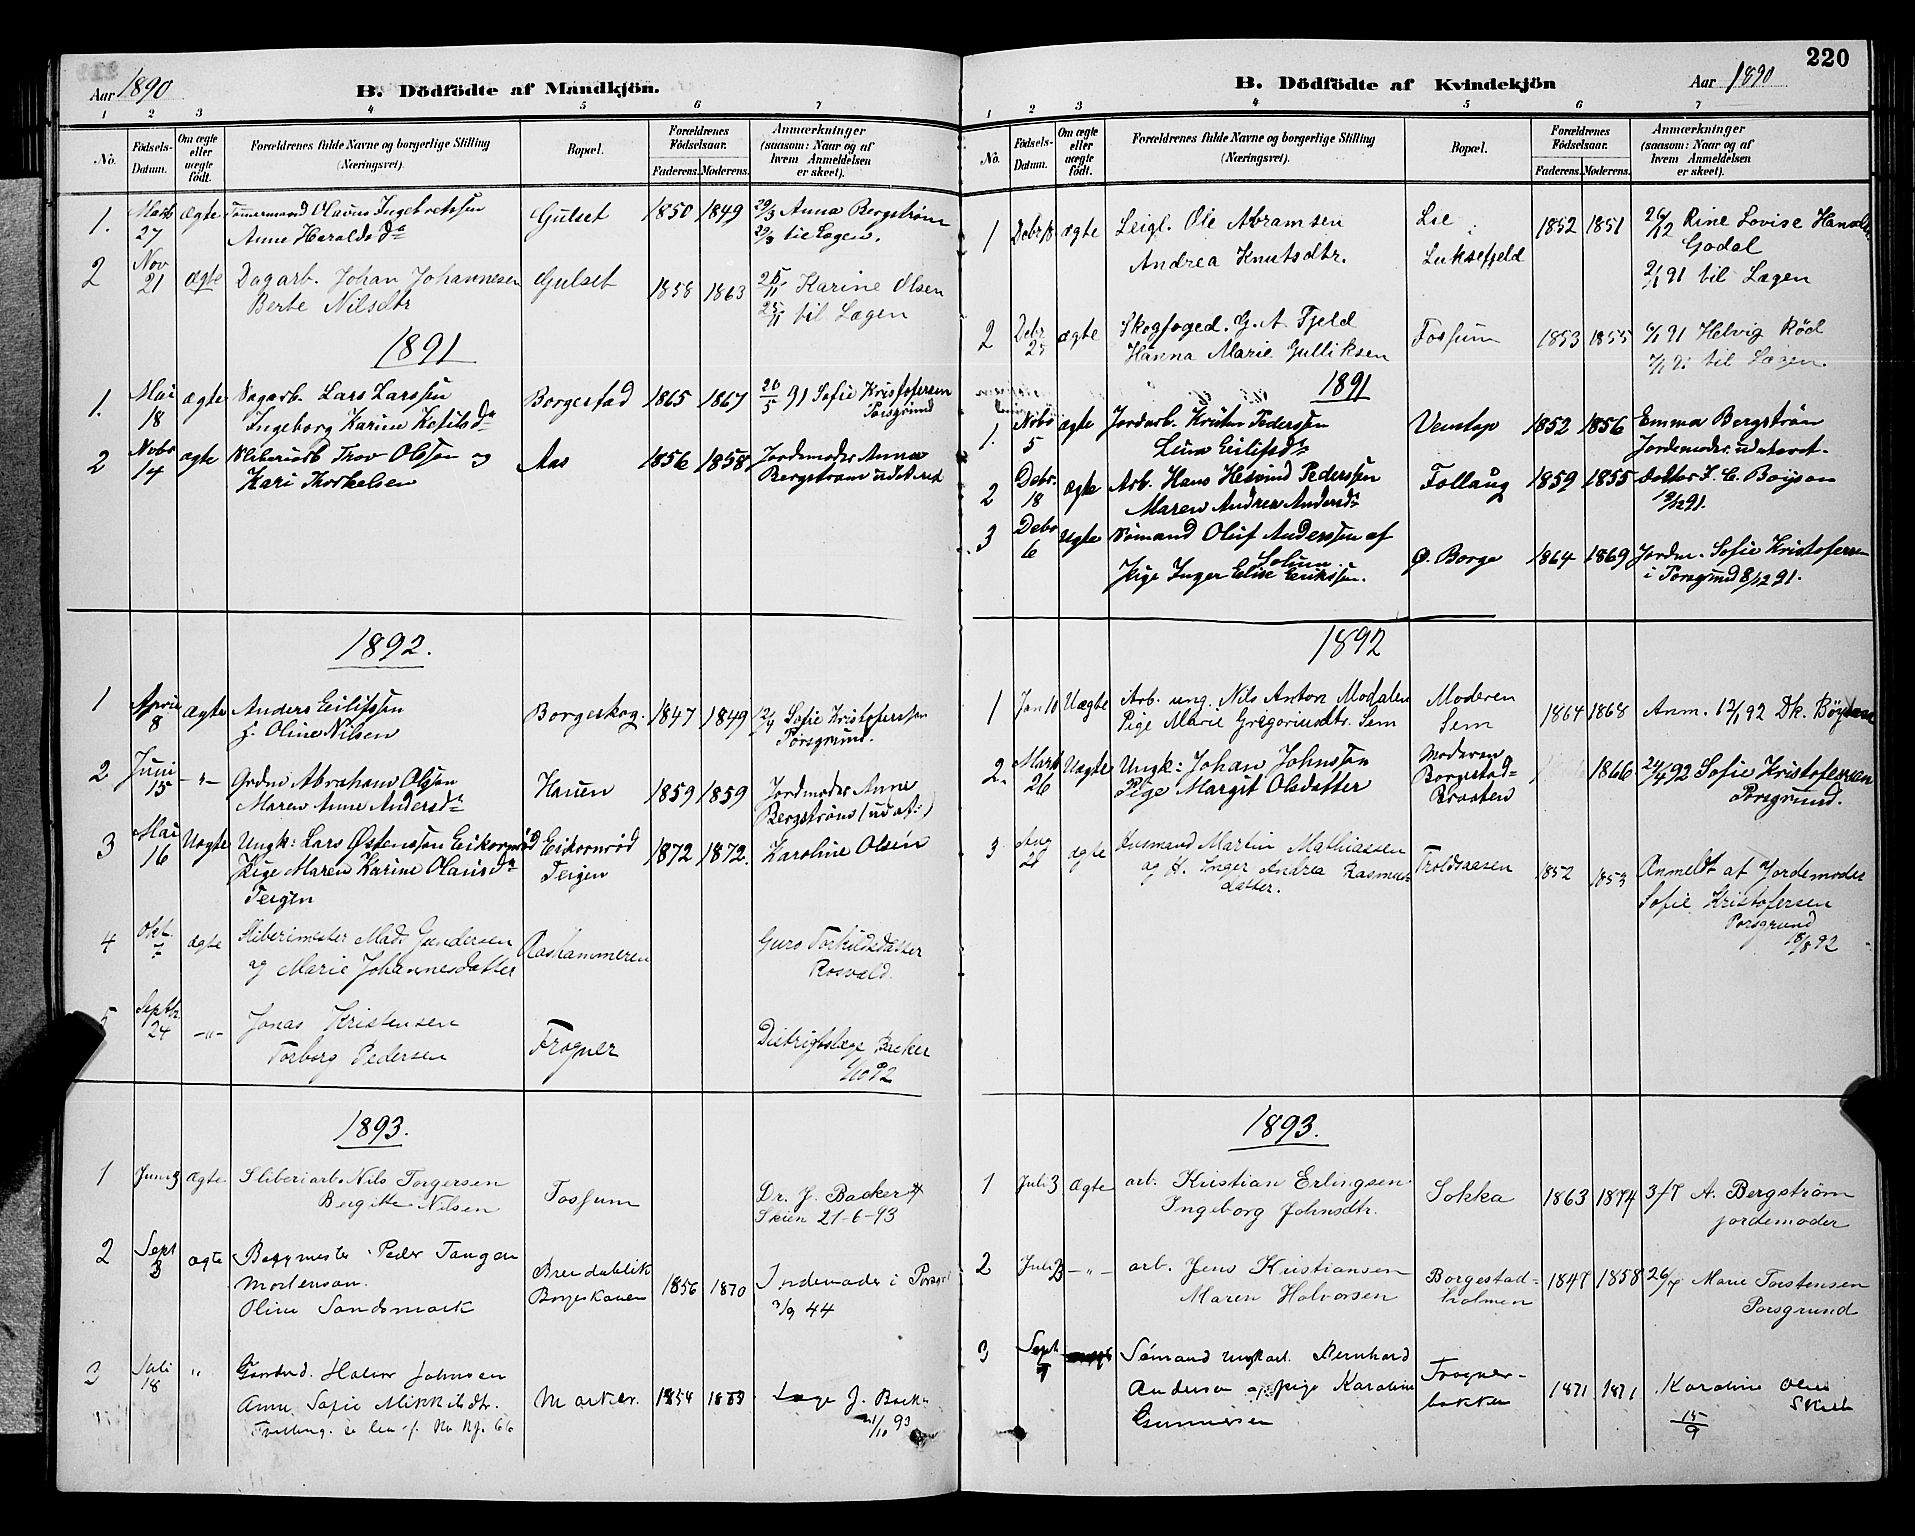 Aar 1890
B. Dödfödte af Mandkjön.
1 2 3 4 5 6 7
No.
Födsels-Datum.
Om ægte eller uægte födt.
Forældrenes fulde Navne og borgerlige Stilling (Næringsvei).
Bopæl.
Forældrenes Födselsaar.
Faderens. Moderens.
Anmærkninger (saasom: Naar og af hvem Anmeldelsen er skeet).
1. Marts 27 ægte Tømermand Olavus Ingebretssen Gulset 1850 1849 29/3 Anna Bergstrøm
Anne Haralds da 29/3 til Lægen.
2 Nov 21 ægte Dagarb. Johan Johannesen Gulset 1858 1863 25/11 Karine Olsen
Berte Nilsdtr 25/11 til Lægen
1891
1. Mai 18 ægte Dagarb. Lars Larssen Borgestad 1865 1867 20/5 91 Sofie Kristofersen
Ingeborg Karine Porsgrund
2 Novbr 14 ægte Trov Olsen og Aas 1856 1858 Jordemoder Anna
Kari Thorkelsen Bergstrøm udateret
1892.
1 April 8 ægte Anders Eilifssen Borgeskog. 1847 1849 12/4 Sofie Kristoferssen
f. Oline Nilsen Porsgrund.
2 Juni 15 -"- Grdm Abraham Olsen Hauen 1859 1859 Jordmoder Anne
Maren Anne Andersda Bergstrøm (udat:)
3 Mai 16 Uægte Ungk: Lars Østenssøn Eikornrød Eikornrød 1872 1872. Karoline Olsen
Pige Maren Karine Olausda Teigen
Teigen
4 Okt. ægte Sliberimester Mads Gundersen Aashammeren Guro Torkildsdatter
og Marie Johannesdatter Rosvald.
5 Septbr. 24 -"- Jonas Kristensen Frogner Distriktslæge Backer
Torborg Pedersen 1/10 92
1893.
1 Juni 3 ægte Sliberiarb. Nils Torgersen Fossum Dr. J. Backer
Bergitte Nilsen Skien 21-6-93
2 Sept 3 ægte Byggmester Peder Tangen Brendablik 1856 1870 Jordemoder i Porsgr
Mortensen. Borgeskauen 3/9 44
Oline Sandsmark
3 Juli 18 " Gaardbr. Halvor Johnsen
Anne Sofie Mikkilsdtr. 1854 Læge J. Backer
Tvilling. 1/10 93

220
B. Dödfödte af Kvindekjön
Aar 1890
1 2 3 4 5 6 7
No.
Födsels-Datum.
Om ægte eller uægte födt.
Forældrenes fulde Navne og borgerlige Stilling (Næringsvei).
Bopæl.
Forældrenes Födselsaar.
Faderens. Moderens.
Anmærkninger (saasom: Naar og af hvem Anmeldelsen er skeet).
1 Debr 18 ægte Leigl. Ole Abramsen Lie 1852 1851 26/12 Rine Lovise
Andrea Knutsdtr. Luksefjeld Godal
2/1 91 til Lægen
2 Debr 25 ægte Skogfoged. G. A. Fjeld Fossum 1853 1855 Helvig Rød
Hanna Marie Gulliksen til Lægen.
1891
1. Novbr 5 ægte Jordarb. Kristen Pederssen Venstøp 1852 1856 Emma Bergstrøm
Eilifsda Jordemoder. udateret.
2 Debr. 18 ægte Arb. Hans Pederssen Follaug 1859 1855 Doktor J. C. Boyson
Maren Andrea Andersda 19/12 91.
3 Debr 6 Uægte Sømand Oluf Anderssen af Solum Ø. Borge 1864 1869 Jordm. Sofie Kristofersen
Pige Inger Elise Erikssen. i Porsgrund 8/12 91.
1892
1 Jan 10 Uægte Arb. ung. Nils Anton Modalen Moderen 1864 1868 Anm. 12/1 92 Dk. Böysen
Pige Marie Gregoriusdtr. Sem Sem
2. Marts 26 Uægte Ungk: Johan Johnssen Moderen 1866 24/4 92 Sofie Kristofersen
Pige Margit Olsdatter Borgestad- Porsgrund.
Braaten
3 Aug 26 ægte Husmand Martin Mathiassen Troldsaasen 1852 1853 Anmeldt af Jordemoder
og H. Inger Andrea Rasmus- Sofie Kristofersen
datter. Porsgrund
18/8 92
1893.
1 Juli 3 ægte arb. Kristian Erlingsen Sokka 1863 1874 3/7 A. Bergstrøm
Ingeborg Johnsdtr. jordemoder
2 Juli 23 -"- arb. Jens Kristiansen Borgestad- 1847 1858 26/7 Marie Torstensen
Maren Halvorsen holmen Porsgrund
3 Sept 7 Sömand ungkarl. Bernhard Frogner- 1871 1871 Karoline Olsen
Andersen og pige Karoline bakken 15/9
Gunnersen